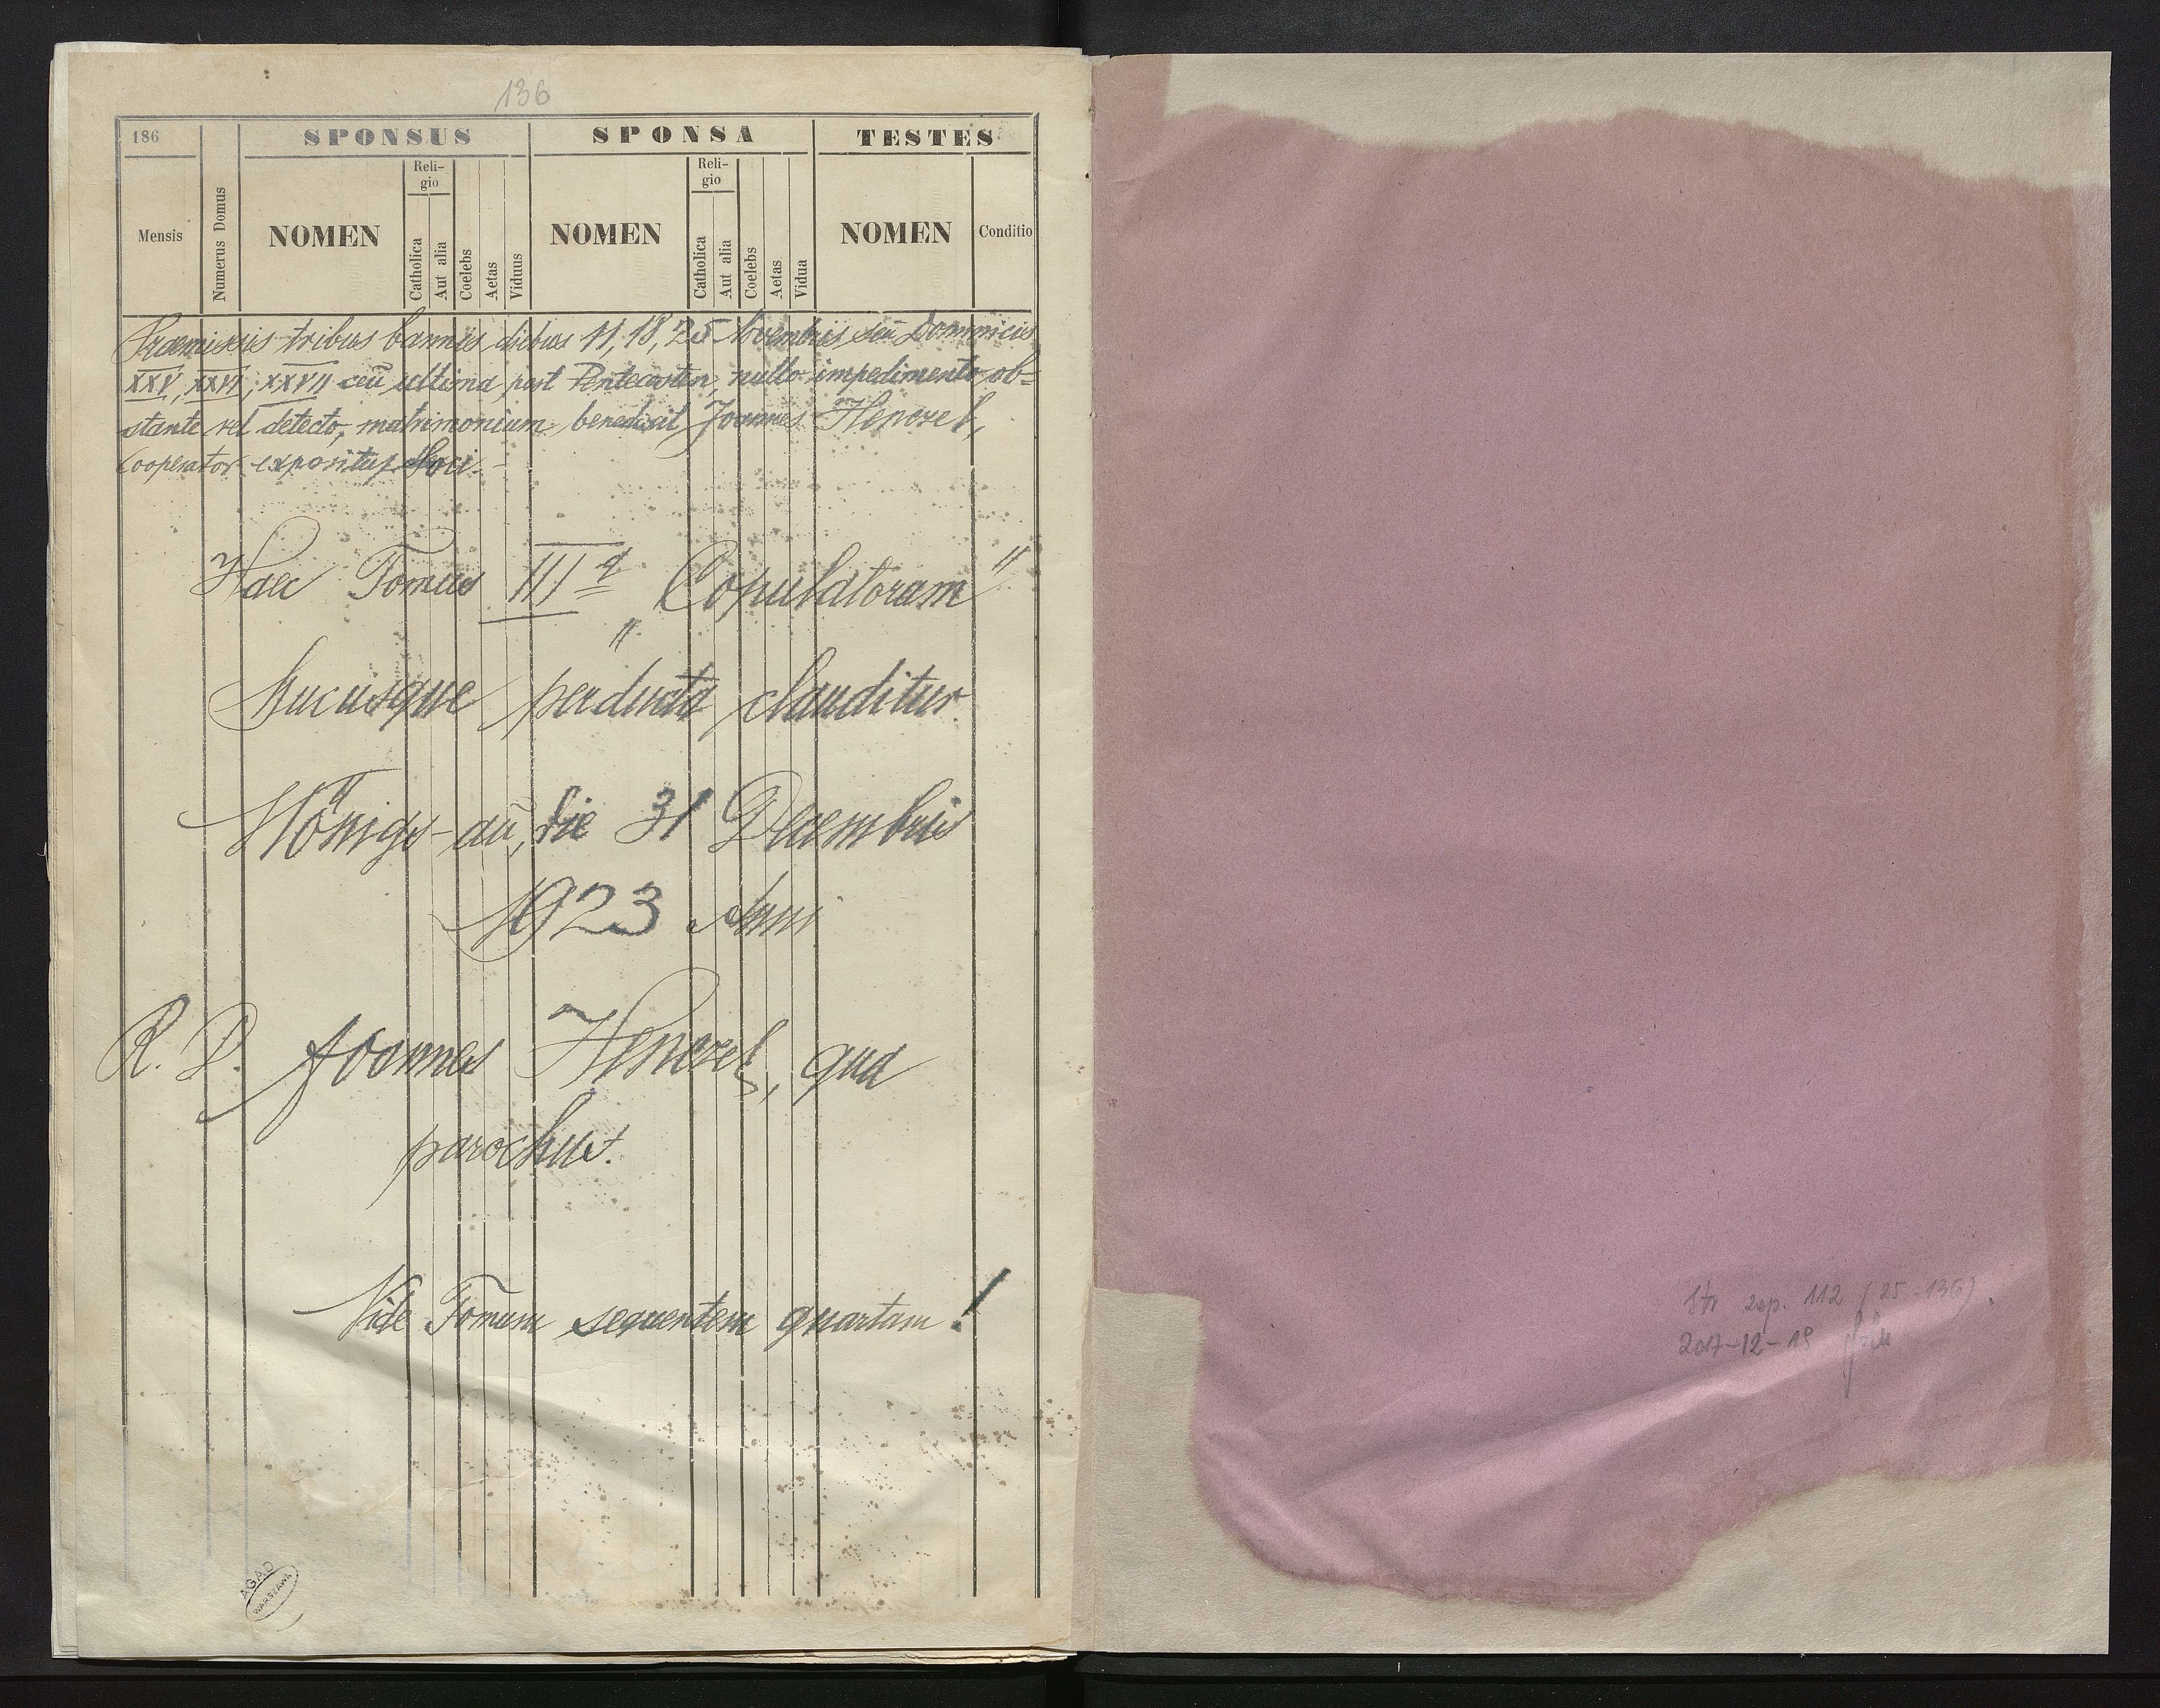 136
186 SPONSUS SPONSA TESTES
Mensis Numerus Domus NOMEN Reli-gio Catholica Aut alia Coelebs Aetas Viduus NOMEN Reli-gio Catholica Aut alia Coelebs Aetas Vidua NOMEN Conditio
Praemissis tribus bannis diebus 11, 18, 25 Novembris seu Dominicis
XXV, XXVI, XXVII ceu ultima post Pentecosten, nullo impedimento ob=
stante vel detecto, matrimonium benedixit Joannes Henczel,
Cooperator expositus loci.
Haec Tomus III a "Copulatorum"
hucusque perducta clauditur.
Königs-au, die 31 Decembris
1923 Anni
R. D. Joannes Henczel, qua
parochus.
Vide Tomum sequentem quartam!
AGAD
WARSZAWA
112 (25-136).
2017-12-19